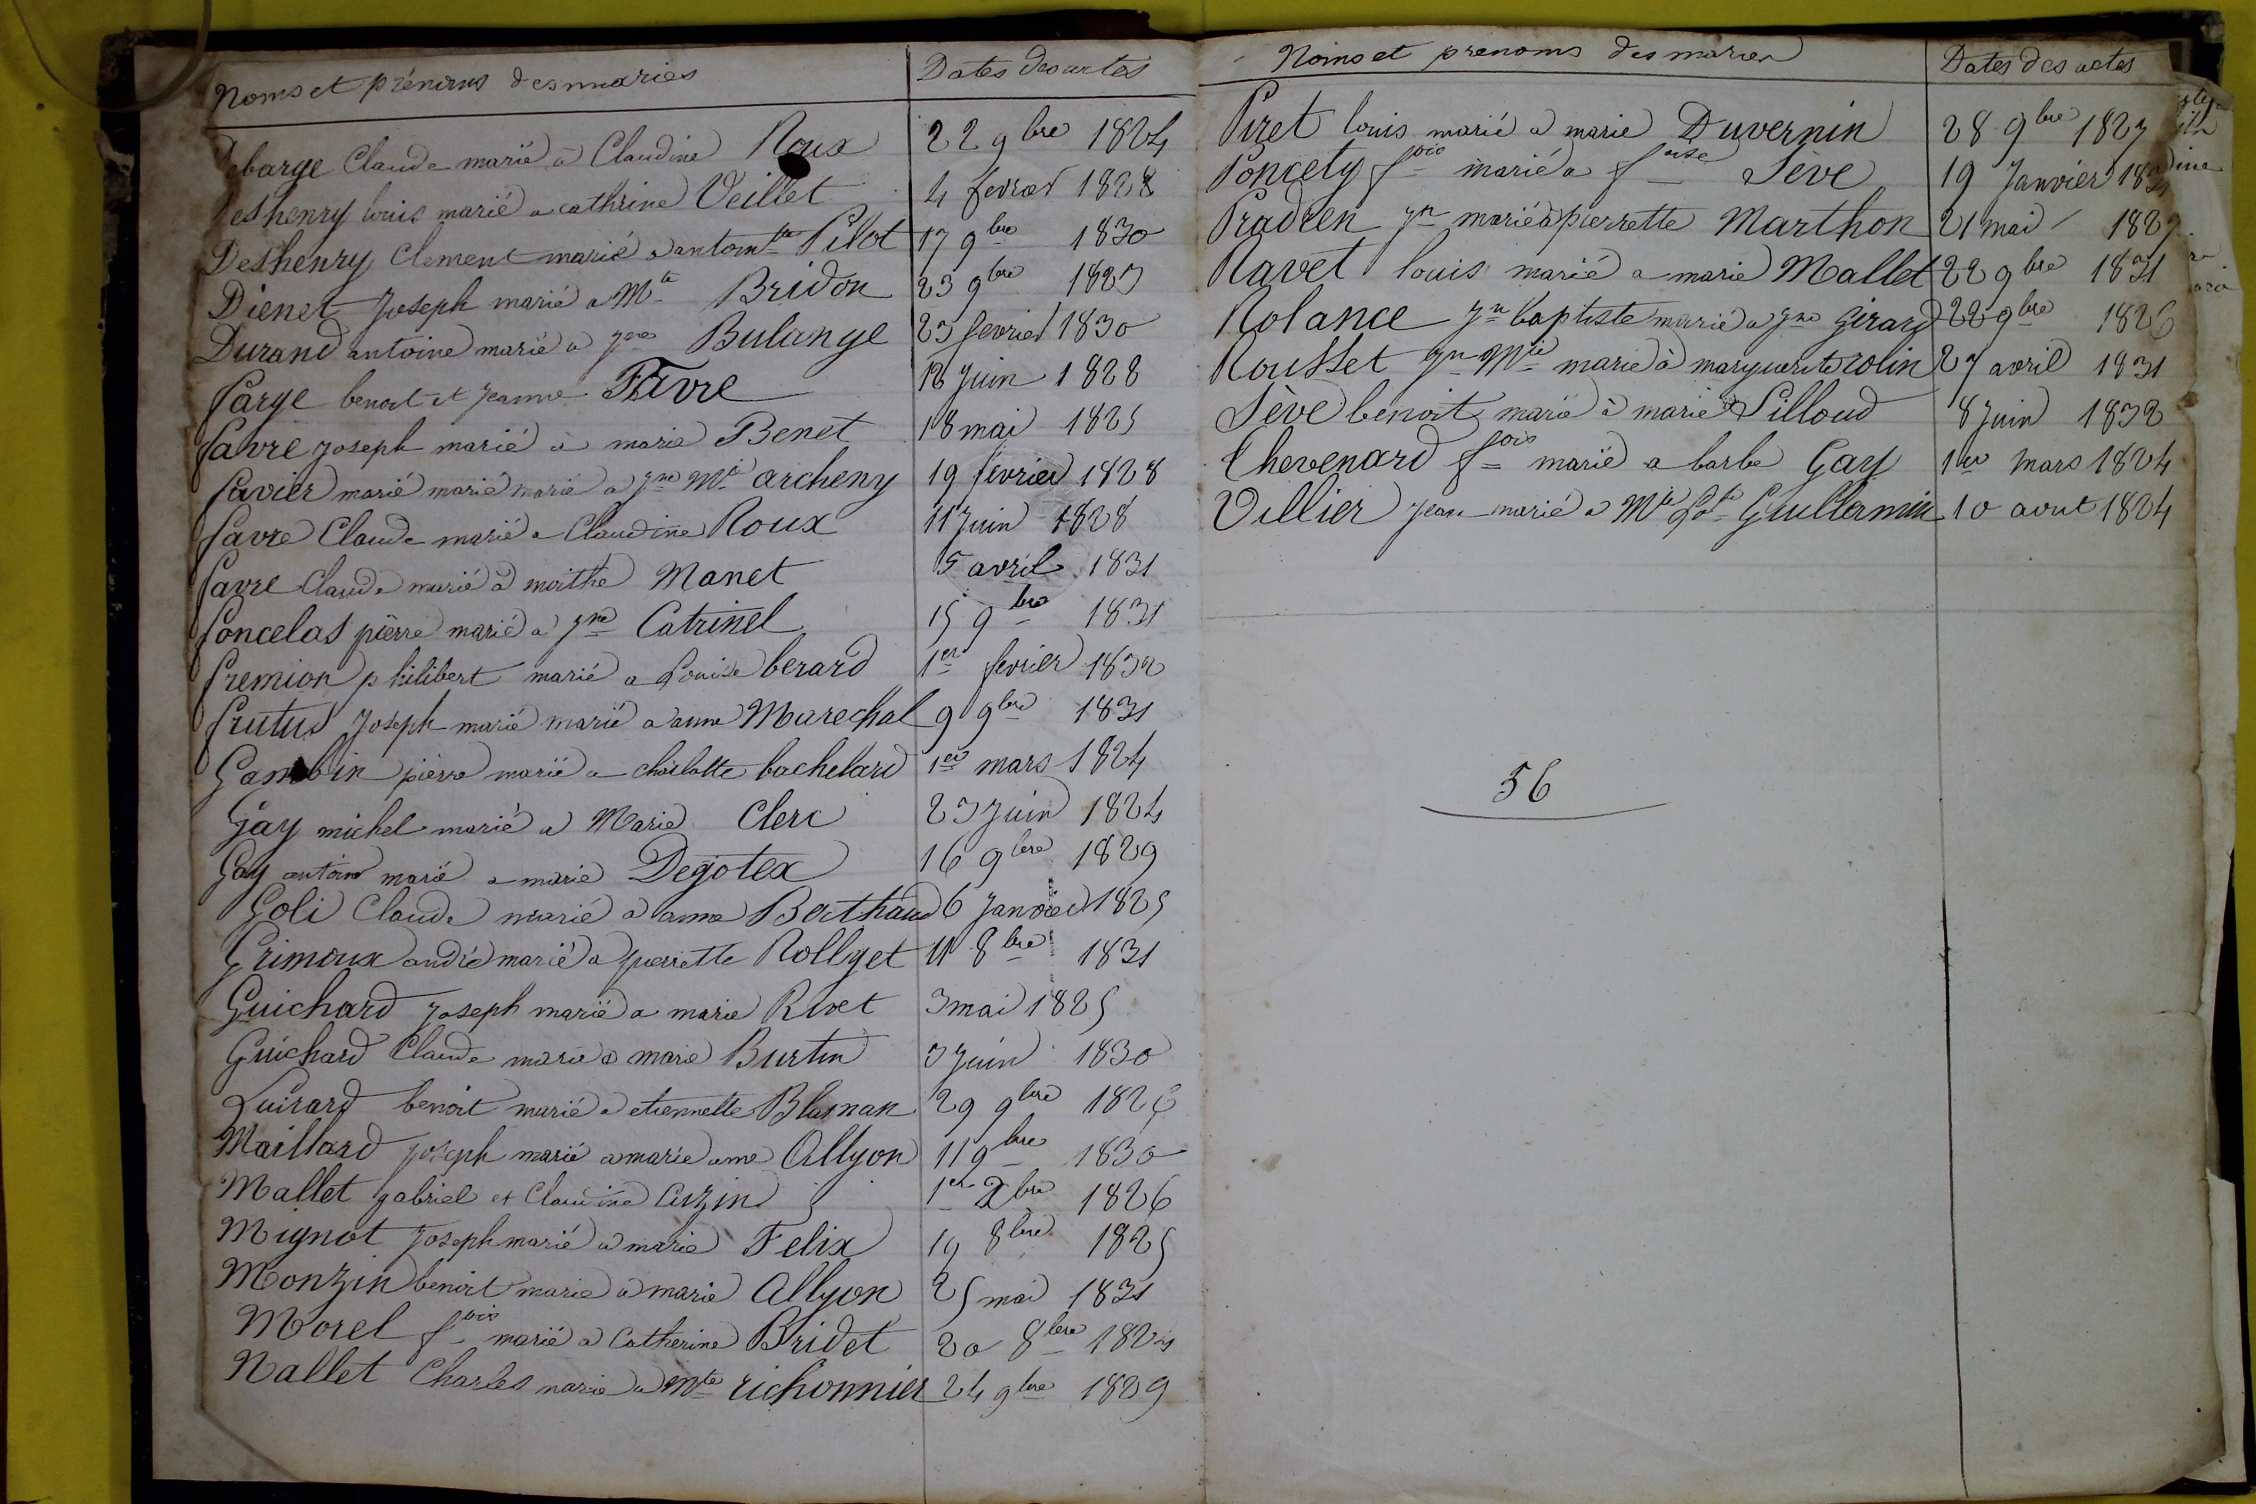 Noms et prénoms des mariés Dates des actes
Debarge Claude marié à Claudine Roux 22 9bre 1824
Deshenry louis marié a cathrine Veillet 4 fevrier 1828
Deshenry Clement marié a antointte Pilot 17 9bre 1830
Dienet Joseph marié a Mte Bridon 23 9bre 1825
Durand antoine marié a Jne Bulange 23 fevrier 1830
farge benoit et Jeanne Favre 18 Juin 1828
favre Joseph marié à marie Benet 18 mai 1825
favier marié marié marié a Jne Mie archeny 19 fevrier 1828
favre Claude marié a Claudine Roux 11 Juin 1828
favre Claude marié à marthe Manet 5 avril 1831
foncelas pierre marié a Jne Catrinel 15 9bre 1831
fremion philibert marié a Louise berard 1er fevrier 1832
frutus Joseph marié marié a anne Marechal 9 9bre 1831
Gambin pierre marié a charlotte bachelard 1er mars 1824
Gay michel marié a Marie Clerc 23 Juin 1824
Gay antoine marié a marie Degotex 16 9bre 1829
Goli Claude marié a anne Berthaud 6 Janvier 1825
Grimoux andré marié a pierrette Rollyet 11 8bre 1831
Guichard Joseph marié a marie Rivet 3 mai 1825
Guichard Claude marié a marie Burtin 3 Juin 1830
Luirard benoit marié a etiennette Blasnan 29 9bre 1826
Maillard Joseph marié a marie anne Allyon 11 9bre 1830
Mallet gabriel et Claudine Cuzin 1er bre 1826
Mignot Joseph marié a marie Felix 19 8bre 1825
Monzin benoit marié a marie Allyon 25 mai 1831
Morel fois marié a Catherine Bridet 20 8bre 1824
Nallet Charles marié a mte richonnier 24 9bre 1829
Noms et prenoms des mariés Dates des actes
Piret louis marié a marie Duvernin 28 9bre 1827
Poncety fois marié a foise Sève 19 Janvier 1831
Pradien Jn marié à pierrette Marthon 21 mai 1827
Ravet louis marié a marie Mallet 22 9bre 1831
Rolance Jn baptiste marié a Jne Girard 22 9bre 1826
Rousset Jn Mie marié à marguerite rolin 27 avril 1831
Sève benoit marié à marie Pilloud 8 Juin 1832
Thevenard fois marié a barbe Gay 1er mars 1824
Villier Jean marié a Mie Lse Guillermin 10 aout 1824
56